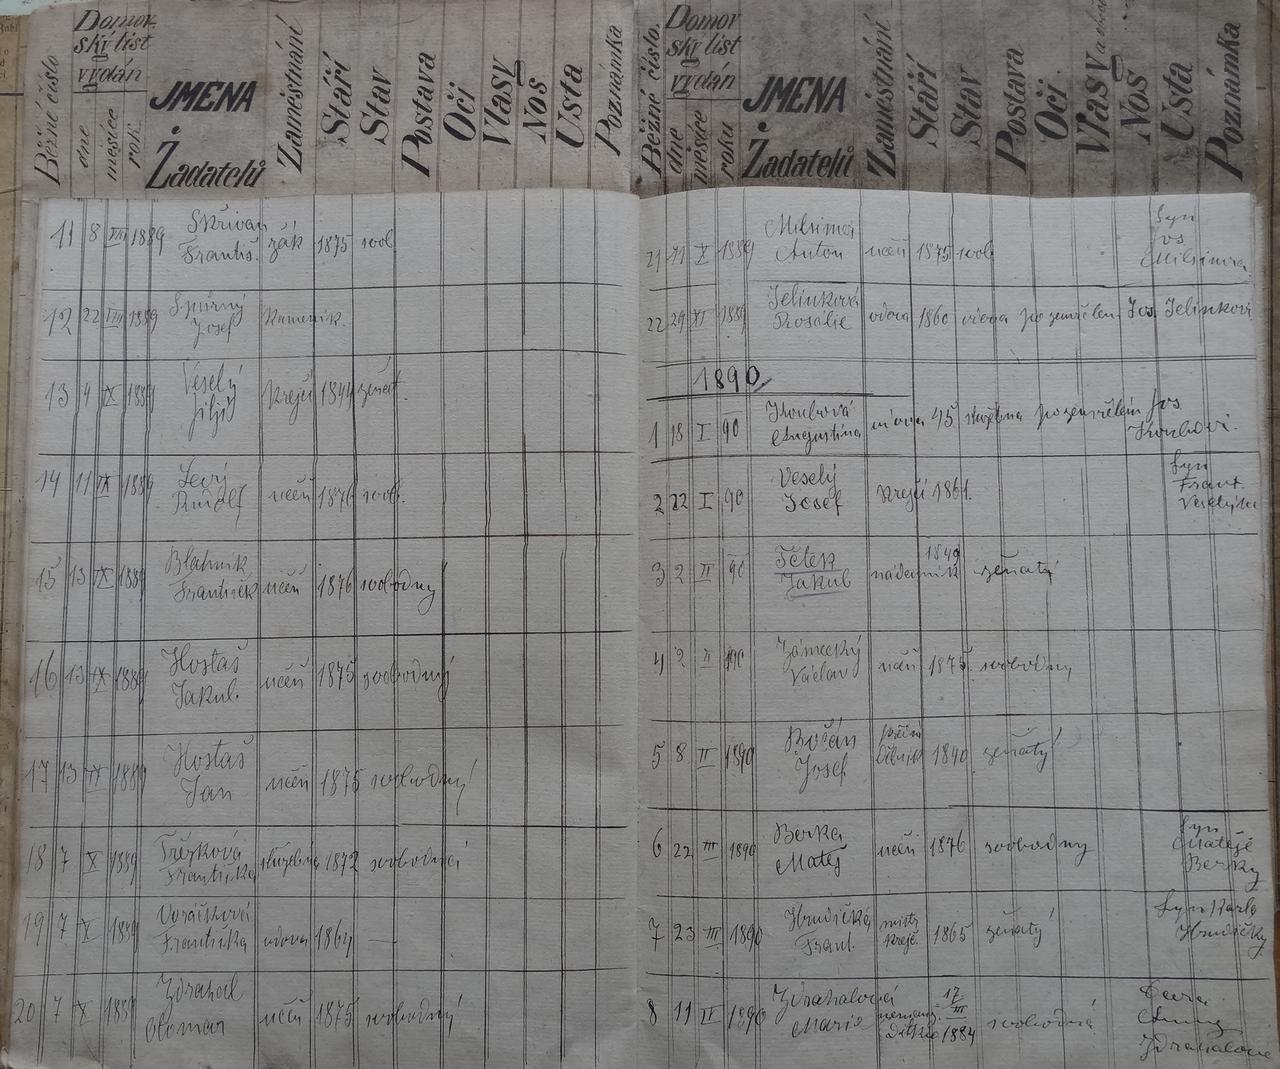 Běžné číslo
Domov-
ský list
vydán
dne
měsíce
rok.
JMÉNA
Žadatelů
Zaměstnání
Stáří
Stav
Postava
Oči
Vlasy
Nos
Usta
Poznámka
11 8 VIII 1889 Skřivan Františ. žák 1875 svob
12 22 VIII 1889 Spurný Josef Kameník.
13 4 IX 1889 Veselý Jiljí Krejčí 1844 ženat.
14 11 IX 1889 Levý Rudolf učeň 1876 svob.
15 13 IX 1889 Blahník František učeň 1876 svobodný
16 13 IX 1889 Hostaš Jakub. učeň 1875 svobodný
17 13 IX 1889 Hostaš Jan učeň 1875 svobodný
18 7 X 1889 Františka služebná 1872 svobodná
19 7 X 1889 Voráčková Františka vdova 1864 —
20 7 X 1889 Zdrahal Otomar učeň 1875 svobodný
Běžné číslo.
Domov
ský list
vydán
dne
měsíce
roku
JMÉNA
Žadatelů
Zaměstnání
Stáří
Stav
Postava
Oči
Vlasy
Nos
Usta
Poznámka
21 11 X 1889 Anton učeň 1875 svob Syn
22 29 XI 1889 Jelinková Rosalie vdova 1860 vdova po zemřelém Jos. Jelinkovi
1890
1 18 I 90 Koubová Augustina vdova 45 služebna po zemřelém Jos. Koubovi.
2 22 I 90 Veselý Josef Krejčí 1861. Syn Frant. Veselýho
3 2 II 90 Tětek Jakub nádenník 1849 ženatý
4 2 II 90 Zámecký Václav učeň 1875. svobodný
5 8 II 1890 Bočán Josef 1840 ženatý
6 22 III 1890 Berka Matěj učeň 1876 svobodny Syn Matěje Berky
7 23 III 1890 Hrudička Frant. mistr krejč. 1865 ženatý Syn Karla Hrudičky
8 11 IV 1890 Zdrahalová Marie 17 III 1884 svobodná Dcera Anny Zdrahalové